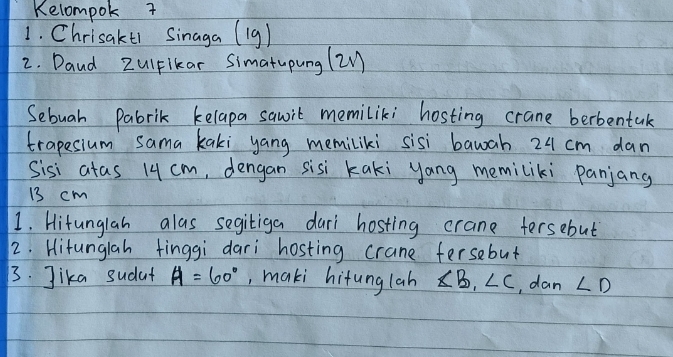 Kelompok 7
1. Chrisakti Sinaga (19)
2. Daud Zulfikar Simatupung (21)
Sebuah Pabrik kelapa sawit memiliki hosting crane berbentuk
trapesium sama kaki yang memiliki sisi bawah 24 cm dan
Sisi atas 14 cm, dengan sisi kaki yang memiliki panjang
13 cm
1. Hitunglah alas segitiga dari hosting crane tersebut
2. Hitunglah tinggi dari hosting crane tersebut
3. Jika sudut A = 60°, maki hitunglah ∠B, ∠C, dan ∠D